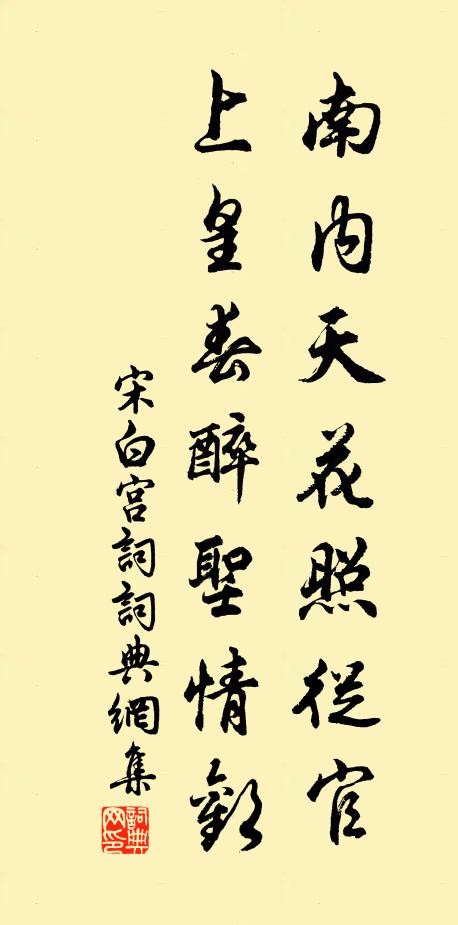 南内天花照從官
上皇春醉聖情歡
宋白宮詞詞典網集
詞典網印